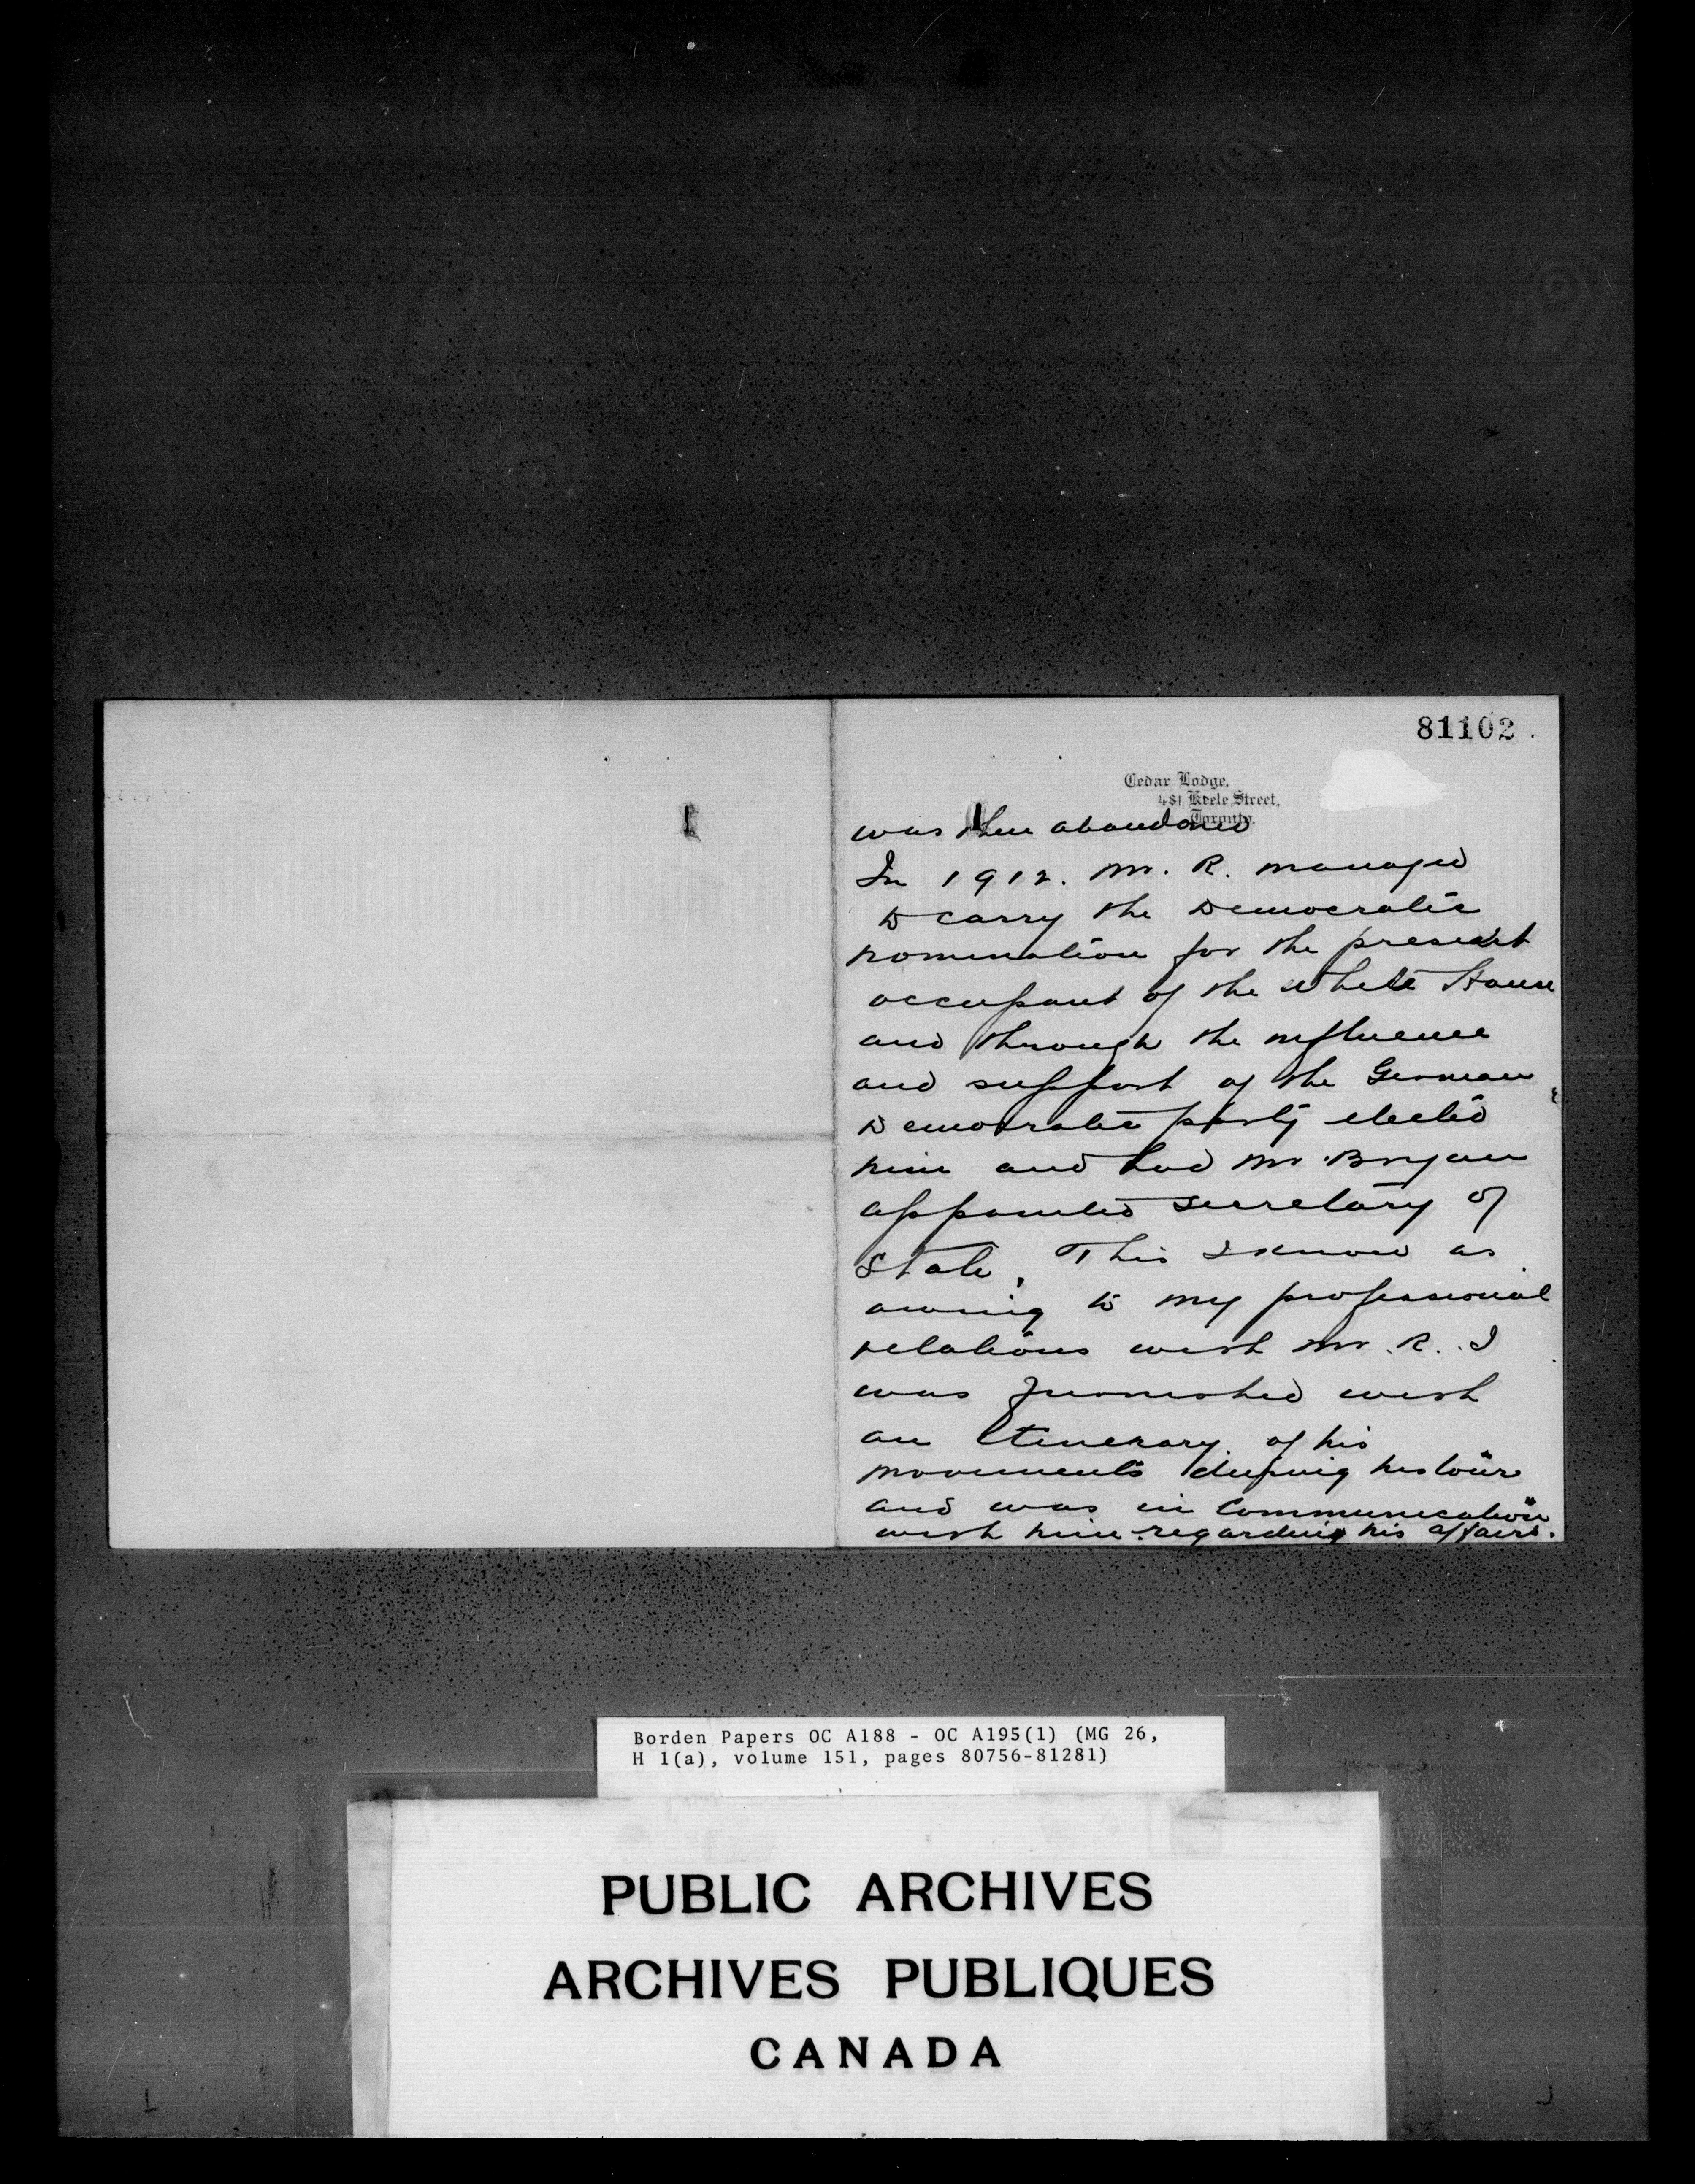 81102.
Cedar Lodge,
481 Keele Street,
Toronto.
was then abandoned
In 1912. Mr. R. managed
to carry the Democratic
nomination for the present
occupant of the White House
and through the influence
and support of the German
Democratic party elected
him and had Mr. Bryan
appointed Secretary of
State. This I know as
owing to my professional
relations with Mr. R. I
was furnished with
an Itenerary of his
movements during his tour
and was in Communication
with him regarding his affairs.
Borden Papers OC A188 - OC A195(1) (MG 26,
H 1(a), volume 151, pages 80756-81281)
PUBLIC ARCHIVES
ARCHIVES PUBLIQUES
CANADA